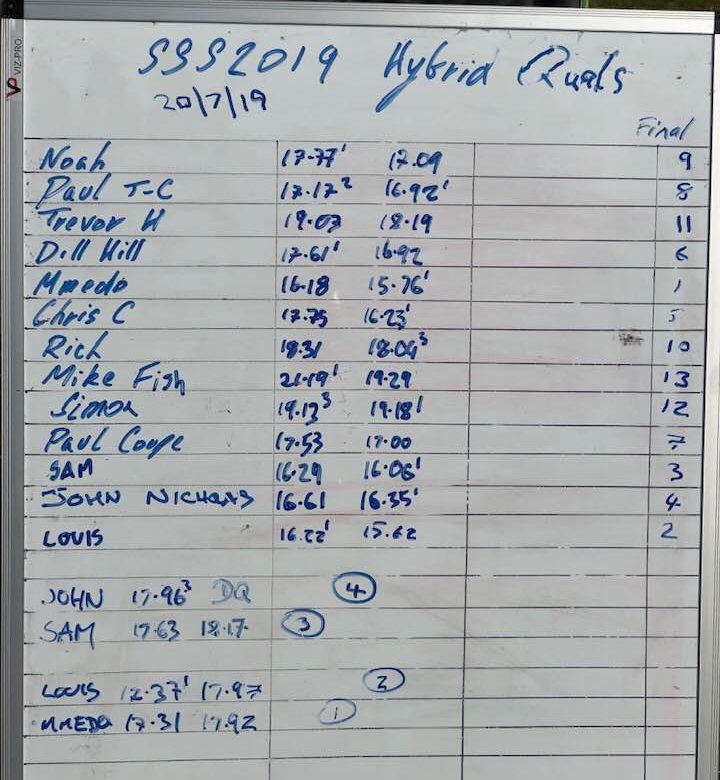 VIZ-PRO
SSS2019 Hybrid Quals
20/7/19
Final
Noah 17.77¹ 17.09 9
Paul T-C 17.17² 16.92¹ 8
Trevor H 19.03 18.19 11
Dill Hill 17.61¹ 16.92 6
Mmedo 16.18 15.76¹ 1
Chris C 17.75 16.23¹ 5
Rich 18.31 18.04³ 10
Mike Fish 21.19¹ 19.29 13
Simon 19.13³ 19.18¹ 12
Paul Coupe 17.53 17.00 7
SAM 16.29 16.06¹ 3
JOHN NICHOLAS 16.61 16.35¹ 4
LOUIS 16.22¹ 15.62 2
JOHN 17.96³ DQ 4
SAM 17.63 18.17 3
LOUIS 12.37¹ 17.97 2
MMEDO 17.31 17.92 1